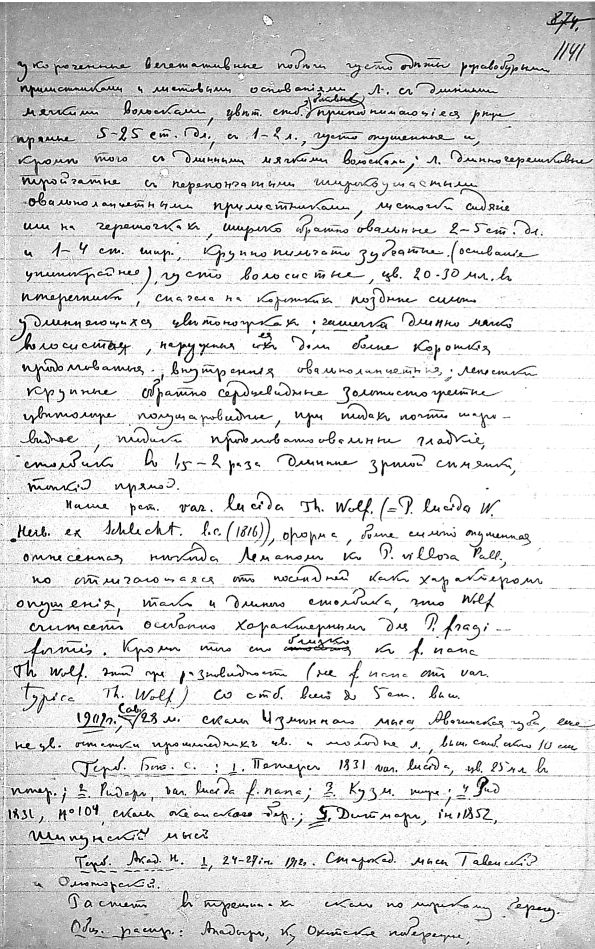 874.
1141
укороченные вегетативные побѣги густо одѣты ржавобурыми
прилистниками и листовыми основаніями. Л. съ длинными
мягкими волосками, цвѣт. стб. приподнимающіеся рѣже
прямые 5-25 ст. дл., съ 1-2 л., густо опушенные и,
кромѣ того съ длинными мягкими волосками; л. длинночерешковые
тройчатые съ перепончатыми широкоушастыми
овальноланцетными прилистниками, листочки сидячіе
или на черешочкахъ, широко обратно овальные 2-5 ст. дл.
и 1-4 ст. шир., крупнопильчато зубчатые (основаніе
цѣльнокрайнее), густо волосистые, цв. 20-30 мл. въ
поперечникѣ, сначала на короткихъ позднѣе сильно
удлиняющихся цвѣтоножкахъ; чашечка длинно мягко
волосистая, наружныя ея доли болѣе короткія
продолговатыя, внутреннія овальноланцетныя; лепестки
крупные обратно сердцевидные золотистожелтые
цвѣтоложе полушаровидное, при плодахъ почти шаро-
видное, плодики продолговатоовальные гладкіе,
столбикъ въ 1,5-2 раза длиннѣе зрѣлой сѣмянки,
тонкій прямой.
Наше раст. var. lucida Th. Wolf. (= P. lucida W.
Herb. ex Schlecht. l.c. (1816)), форма, болѣе сильно опушенная
отнесенная никогда Леманомъ къ P. villosa Pall.,
но отличающаяся отъ послѣдней какъ характеромъ
опушенія, такъ и длиною столбика, что Wolf
считаетъ особенно характернымъ для P. fragi-
formis. Кромѣ того оно близко къ f. nana
Th. Wolf. этой же разновидности (не f. nana отъ var.
typica Th. Wolf) со стб. всего до 5 ст. выш.
1909 г., 28 м. скалы Измѣннаго мыса, Авачинская губа, еще
не цв. остатки прошлоднихъ цв. и молодые л., выш. стб. около 10 ст
Герб. Бот. с.: 1. Петерсъ 1831 var. lucida, цв. 25 мл въ
попер.; 2. Ридеръ, var. lucida f. nana; 3. Кузм. ; 4 Рид
1831, №104, скалы океанскаго бер.; 5. Дитмаръ, in 1852,
Шипунскій мысъ
Герб. Акад. Н. 1, 24-27 1920. Старокад. мысы Говенскій
и Олюторскій.
Растетъ въ трещинахъ скалъ по морскому берегу.
Общ. распр.: Анадырь, К, Охотское побережье,